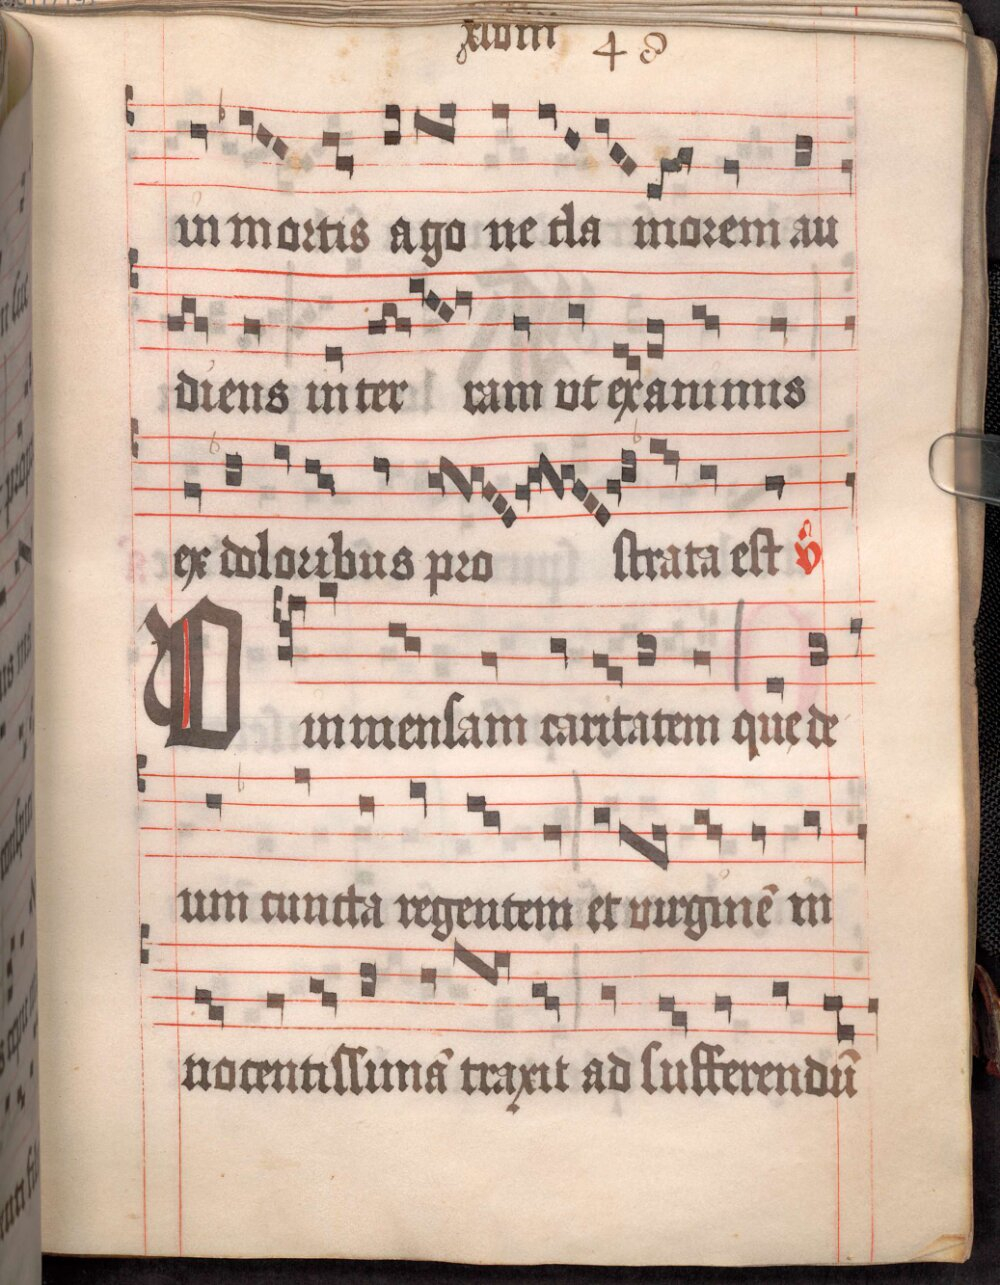 xlviii 48
in mortis agone clamorem au
diens in terram ut exanimis
ex doloribus prostrata est v̊
O inmensam caritatem que de
um cuncta regentem et virginē in
nocentissimā traxit ad sufferendū